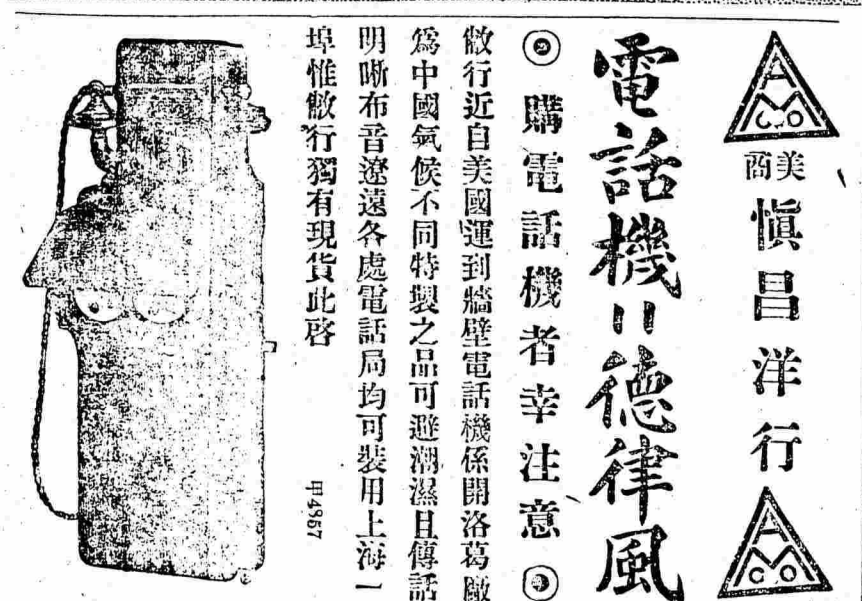 AMCO
美商
慎昌洋行
AMCO
電話機＝德律風
◉購電話機者幸注意◉
敝行近自美國運到牆壁電話機係開洛葛廠
爲中國氣候不同特製之品可避潮濕且傳話
明晰布音遼遠各處電話局均可裝用上海一
埠惟敝行獨有現貨此啓
甲4957